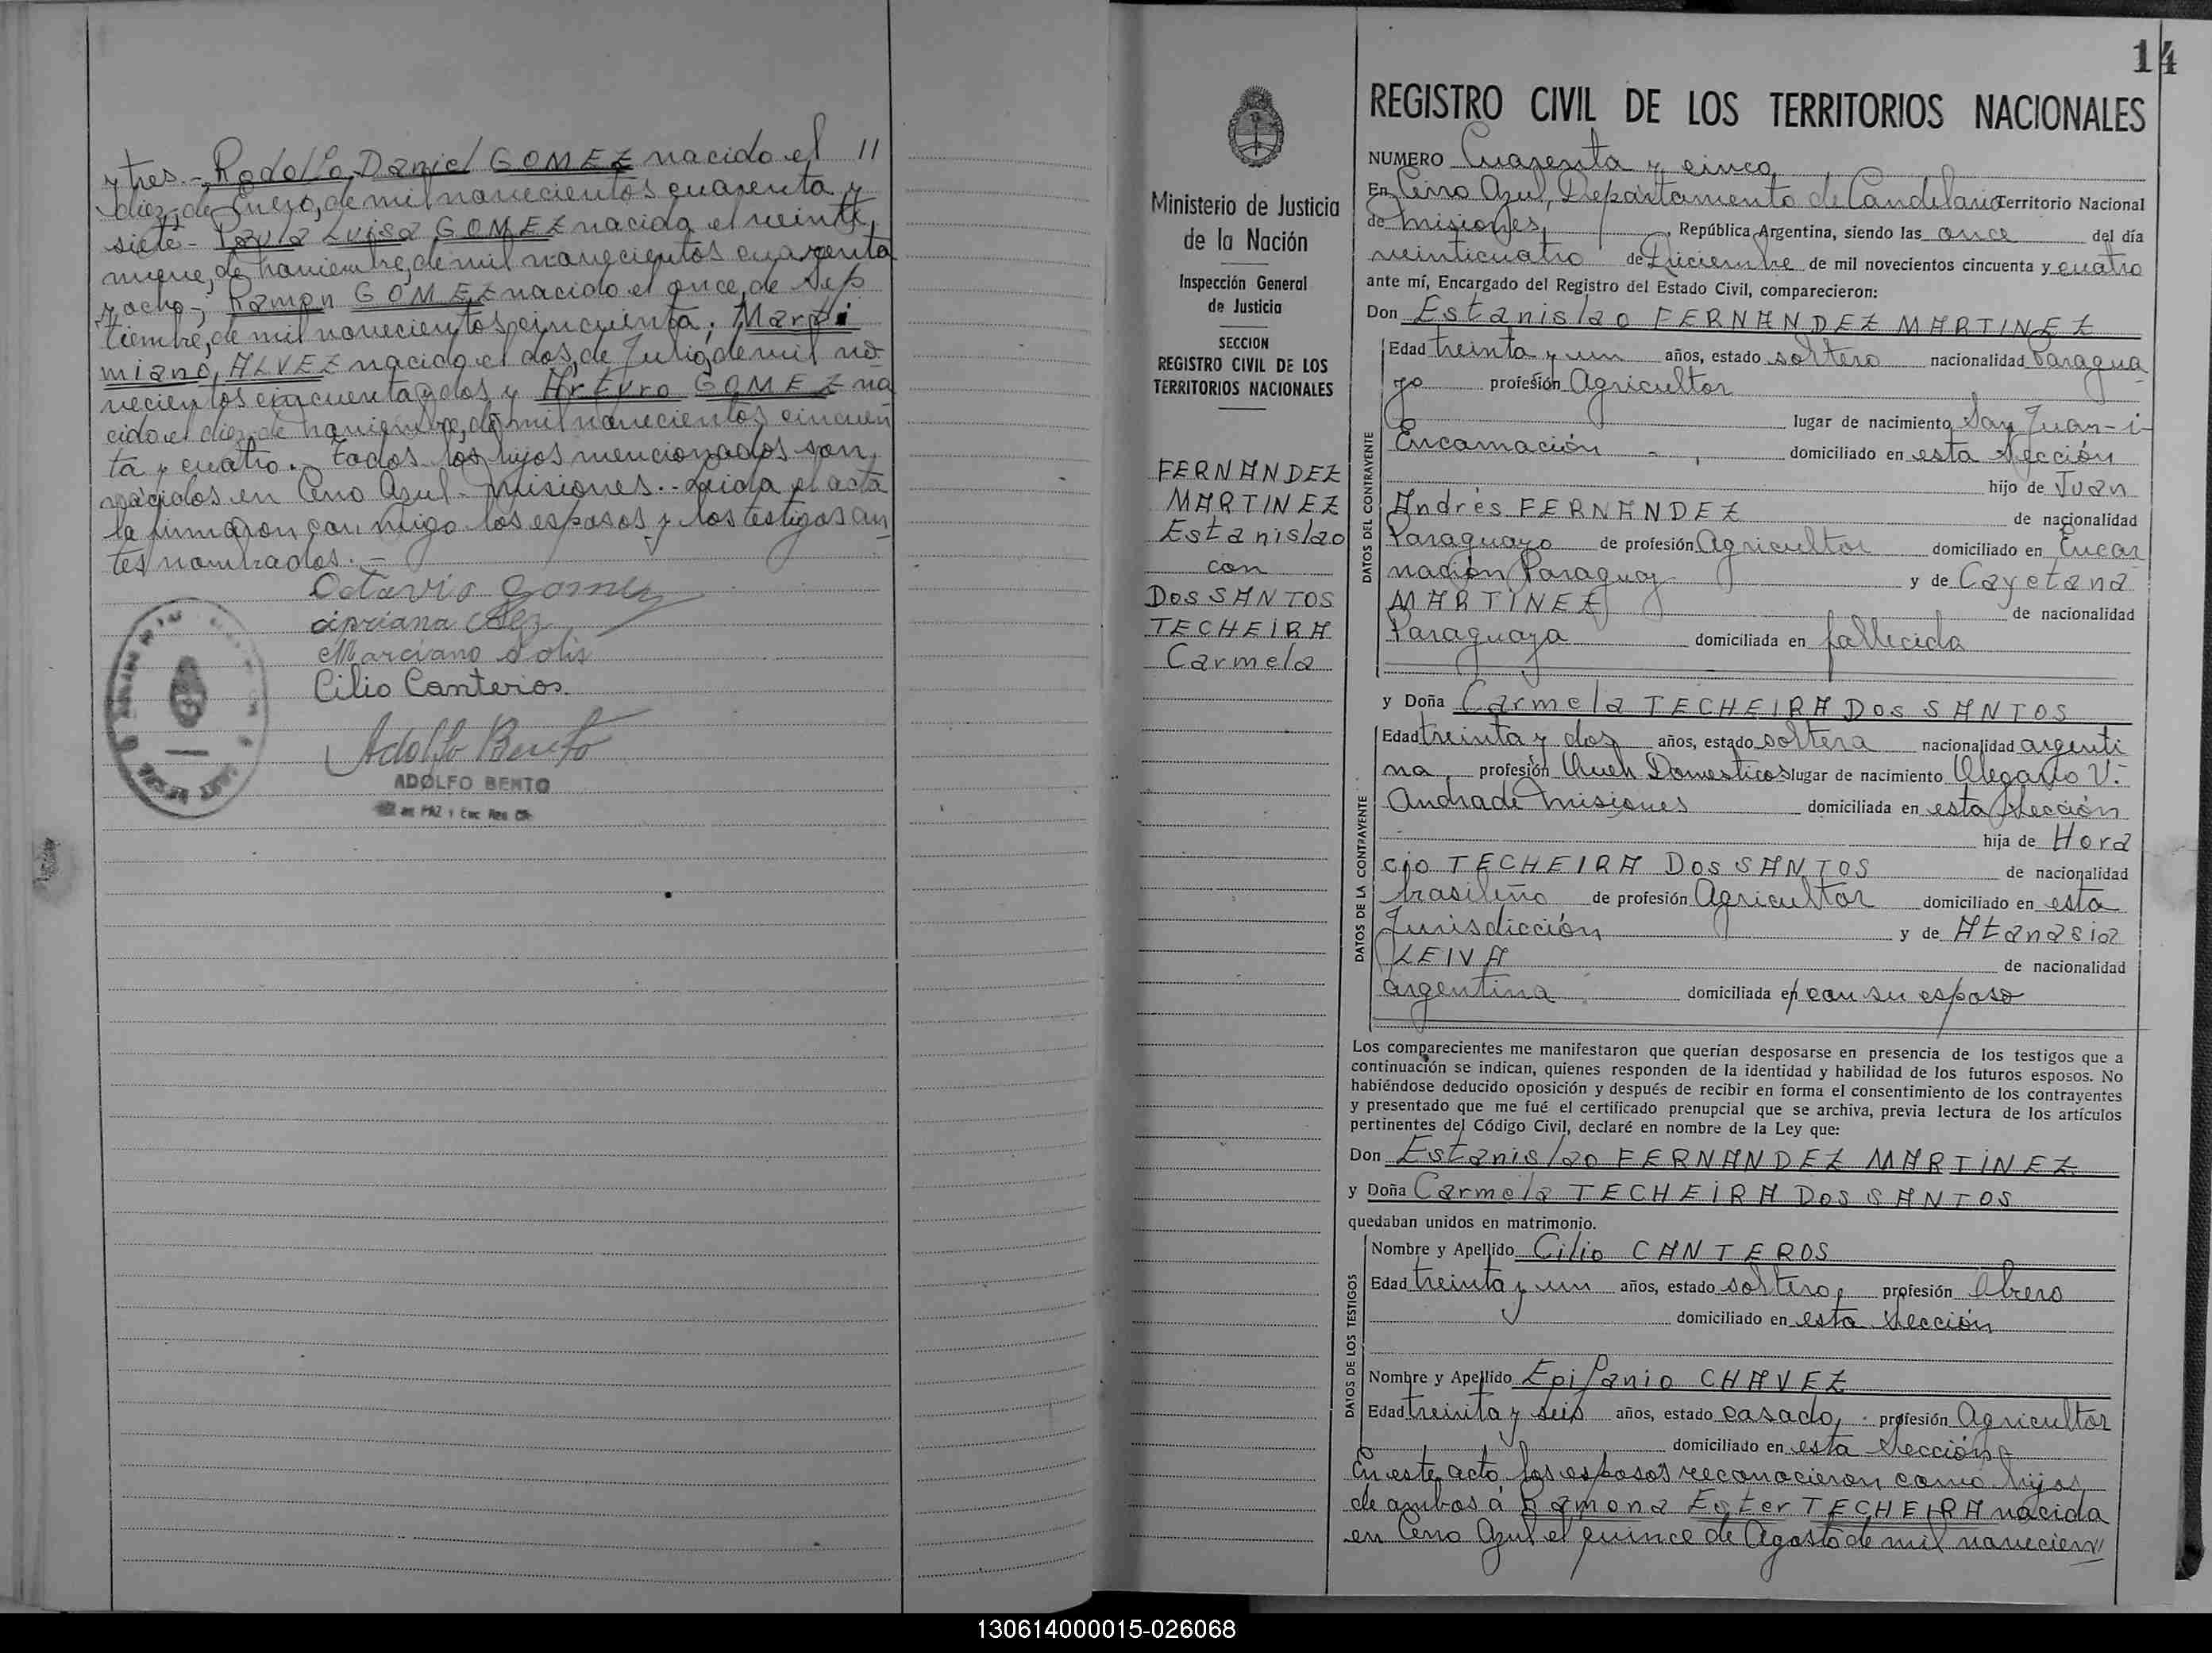 y tres.- Rodolfo Daniel GOMEZ nacido el
diez, de Enero, de mil novecientos cuarenta y
siete - Paula Luisa GOMEZ nacida el veinti
nueve, de noviembre, de mil novecientos cuarenta
y ocho -, Ramon GOMEZ nacido el once, de Sep
tiembre, de mil novecientos cincuenta. Marzi
miano, ALVEZ nacido el dos, de Julio, de mil no-
vecientos cincuenta y dos y Arturo GOMEZ na
cido el diez de noviembre, de mil novecientos cincuen
ta y cuatro. Todos los hijos mencionados son
nacidos en Cerro Azul - Misiones.- Leida el acta
la firmaron con migo los esposos y los testigos an
tes nombrados.-
Octavio Gomez
cipriana
Marciano Solis
Cilio Canteros.
Adolfo Bento
ADOLFO BENTO
14
Ministerio de Justicia
de la Nación
Inspección General
de Justicia
SECCION
REGISTRO CIVIL DE LOS
TERRITORIOS NACIONALES
FERNANDEZ
MARTINEZ
Estanislao
con
Dos SANTOS
TECHEIRA
Carmela
REGISTRO CIVIL DE LOS TERRITORIOS NACIONALES
NUMERO Cuarenta y cinco
En Cerro Azul, Departamento de Candelaria Territorio Nacional
de Misiones, República Argentina, siendo las once del día
veinticuatro de Diciembre de mil novecientos cincuenta y cuatro
ante mí, Encargado del Registro del Estado Civil, comparecieron:
Don Estanislao FERNANDEZ MARTINEZ
DATOS DEL CONTRAYENTE
Edad treinta y un años, estado soltero nacionalidad Paragua
yo profesión Agricultor
lugar de nacimiento San Juan-i-
Encarnación domiciliado en esta Sección
hijo de Juan
Andrés FERNANDEZ de nacionalidad
Paraguayo de profesión Agricultor domiciliado en Encar
nación Paraguay y de Cayetana
MARTINEZ de nacionalidad
Paraguaya domiciliada en fallecida
y Doña Carmela TECHEIRA Dos SANTOS
DATOS DE LA CONTRAYENTE
Edad treinta y dos años, estado soltera nacionalidad argenti
na, profesión Queh. Domesticos lugar de nacimiento Olegario V.
Andrade Misiones domiciliada en esta Sección
hija de Hora
cio TECHEIRA Dos SANTOS de nacionalidad
brasileño de profesión Agricultor domiciliado en esta
Jurisdicción y de Atanasia
LEIVA de nacionalidad
argentina domiciliada en con su esposo
Los comparecientes me manifestaron que querían desposarse en presencia de los testigos que a
continuación se indican, quienes responden de la identidad y habilidad de los futuros esposos. No
habiéndose deducido oposición y después de recibir en forma el consentimiento de los contrayentes
y presentado que me fué el certificado prenupcial que se archiva, previa lectura de los artículos
pertinentes del Código Civil, declaré en nombre de la Ley que:
Don Estanislao FERNANDEZ MARTINEZ
y Doña Carmela TECHEIRA Dos SANTOS
quedaban unidos en matrimonio.
DATOS DE LOS TESTIGOS
Nombre y Apellido Cilio CANTEROS
Edad treinta y un años, estado soltero, profesión Obrero
domiciliado en esta Sección
Nombre y Apellido Epifanio CHAVEZ
Edad treinta y seis años, estado casado, profesión Agricultor
domiciliado en esta Sección
En este acto los esposos reconocieron como hijos
de ambos á Ramona Ester TECHEIRA nacida
en Cerro Azul el quince de Agosto de mil novecien
130614000015-026068